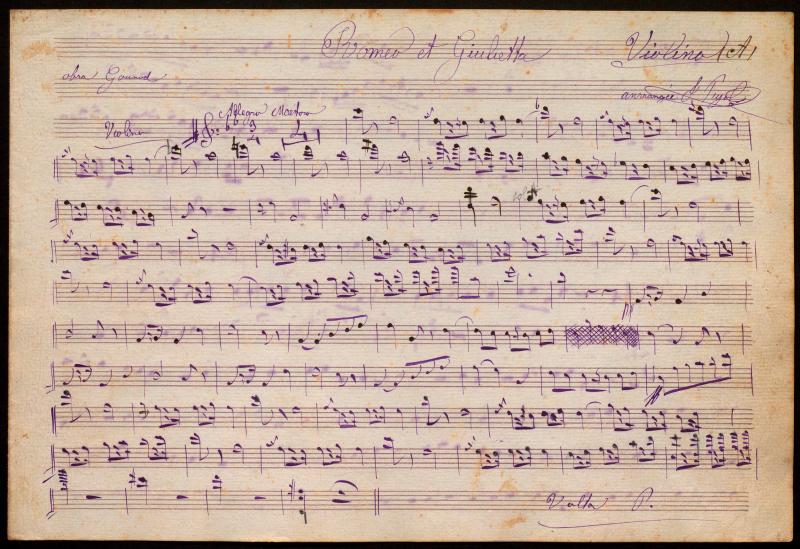 Romeo et Giulietta Violino (A)
obra Gounod
arrangée
Violino Allegro
Volta P.